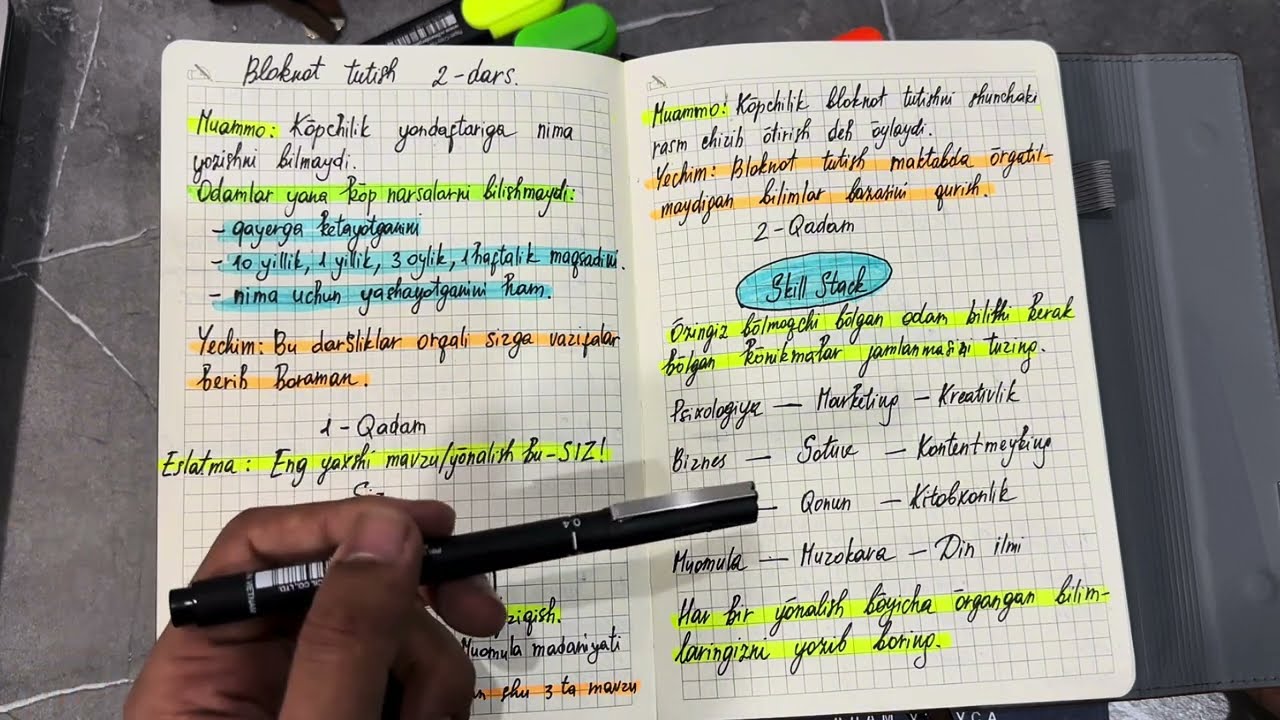 Bloknot tutish 2-dars.
Muammo: Kōpchilik yondaftariga nima
yozishni bilmaydi.
Odamlar yana kōp narsalarni bilishmaydi:
- qayerga ketayotganini
- 10 yillik, 1 yillik, 3 oylik, 1 haftalik maqsadini.
- nima uchun yashayotganini ham.
Yechim: Bu darsliklar orqali sizga vazifalar
berib boraman.
1-Qadam
Eslatma: Eng yaxshi mavzu/yōnalish bu-SIZ!
Siz
qiziqish.
Muomula madaniyati
shu 3 ta mavzu
Muammo: Kōpchilik bloknot tutishni shunchaki
rasm chizib ōtirish deb ōylaydi.
Yechim: Bloknot tutish maktabda ōrgatil-
maydigan bilimlar bazasini qurish.
2-Qadam
Skill Stack
Ōzingiz bōlmoqchi bōlgan odam bilishi kerak
bōlgan kōnikmalar jamlanmasini tuzing.
Psixologiya — Marketing — Kreativlik
Biznes — Sotuv — Kontentmeyking
— Qonun — Kitobxonlik
Muomula — Muzokara — Din ilmi
Har bir yōnalish bōyicha ōrgangan bilim-
laringizni yozib boring.
0.4